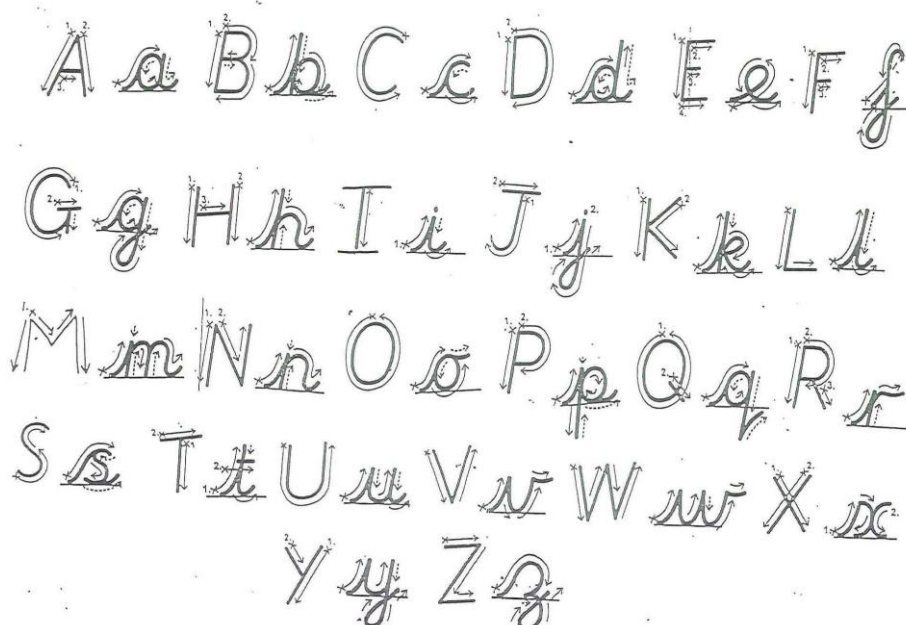 A a B b C c D d E e F f
G g H h I i J j K k L l
M m N n O o P p Q q R r
S s T t U u V v W w X x
Y y Z z